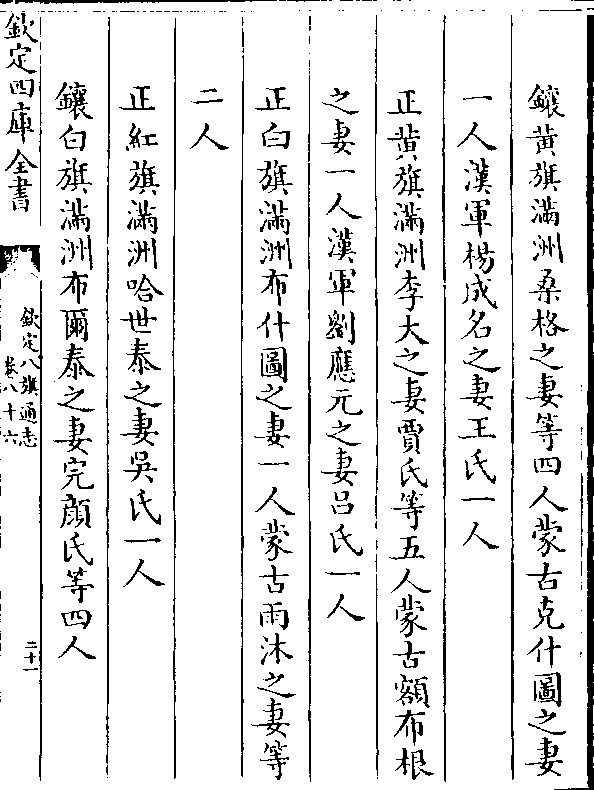 鑲黃旗滿洲桑格之妻等四人蒙古克什圖之妻
一人漢軍楊成名之妻王氏一人
正黃旗滿洲李大之妻賈氏等五人蒙古額布根
之妻一人漢軍劉應元之妻呂氏一人
正白旗滿洲布什圖之妻一人蒙古雨沐之妻等
二人
正紅旗滿洲哈世泰之妻吳氏一人
鑲白旗滿洲布爾泰之妻完顏氏等四人
欽定四庫全書
欽定八旗通志
卷八十六
二十一